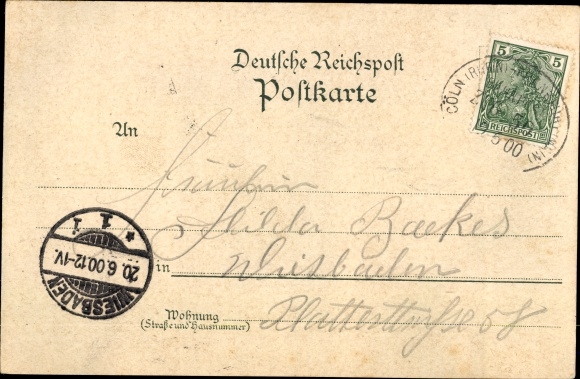 Deutsche Reichspost
Postkarte
5 5
REICHSPOST
CÖLN (RHEIN)
5 00
An
Fräulein
Hilda Backes
in Wiesbaden
Wohnung
(Straße und Hausnummer)
Platterstraße 58
WIESBADEN
20.6.00.12-1V.
* 1 1